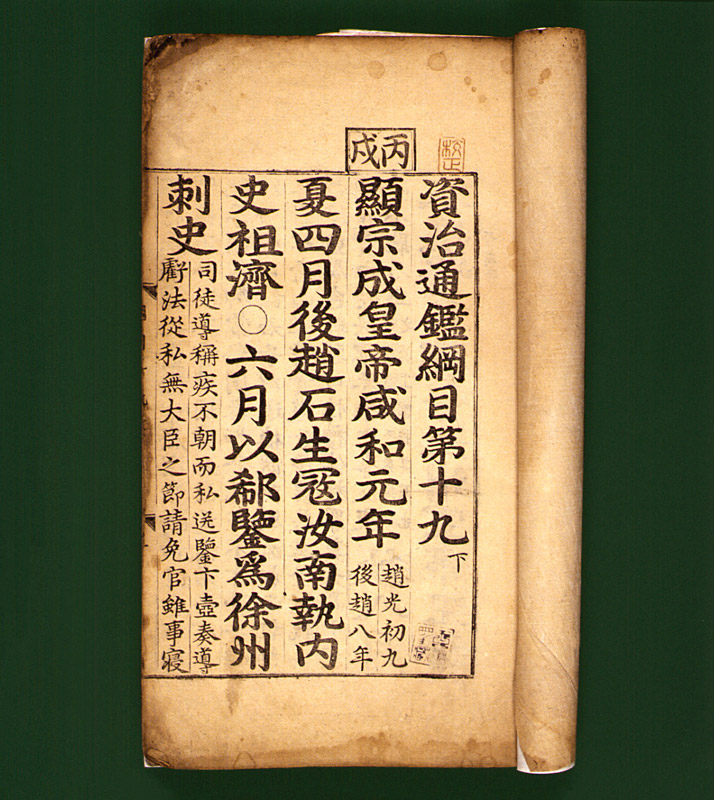 校正
丙戌
資治通鑑綱目第十九下
顯宗成皇帝咸和元年
趙光初九
後趙八年
夏四月後趙石生冦汝南執内
史祖濟○六月以郗鑒爲徐州
刺史
司徒導稱疾不朝而私送鑒卞壼奏導
虧法從私無大臣之節請免官雖事寢